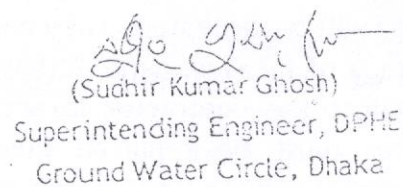 (Sudhir Kumar Ghosh)
Superintending Engineer, DPHE
Ground Water Circle, Dhaka